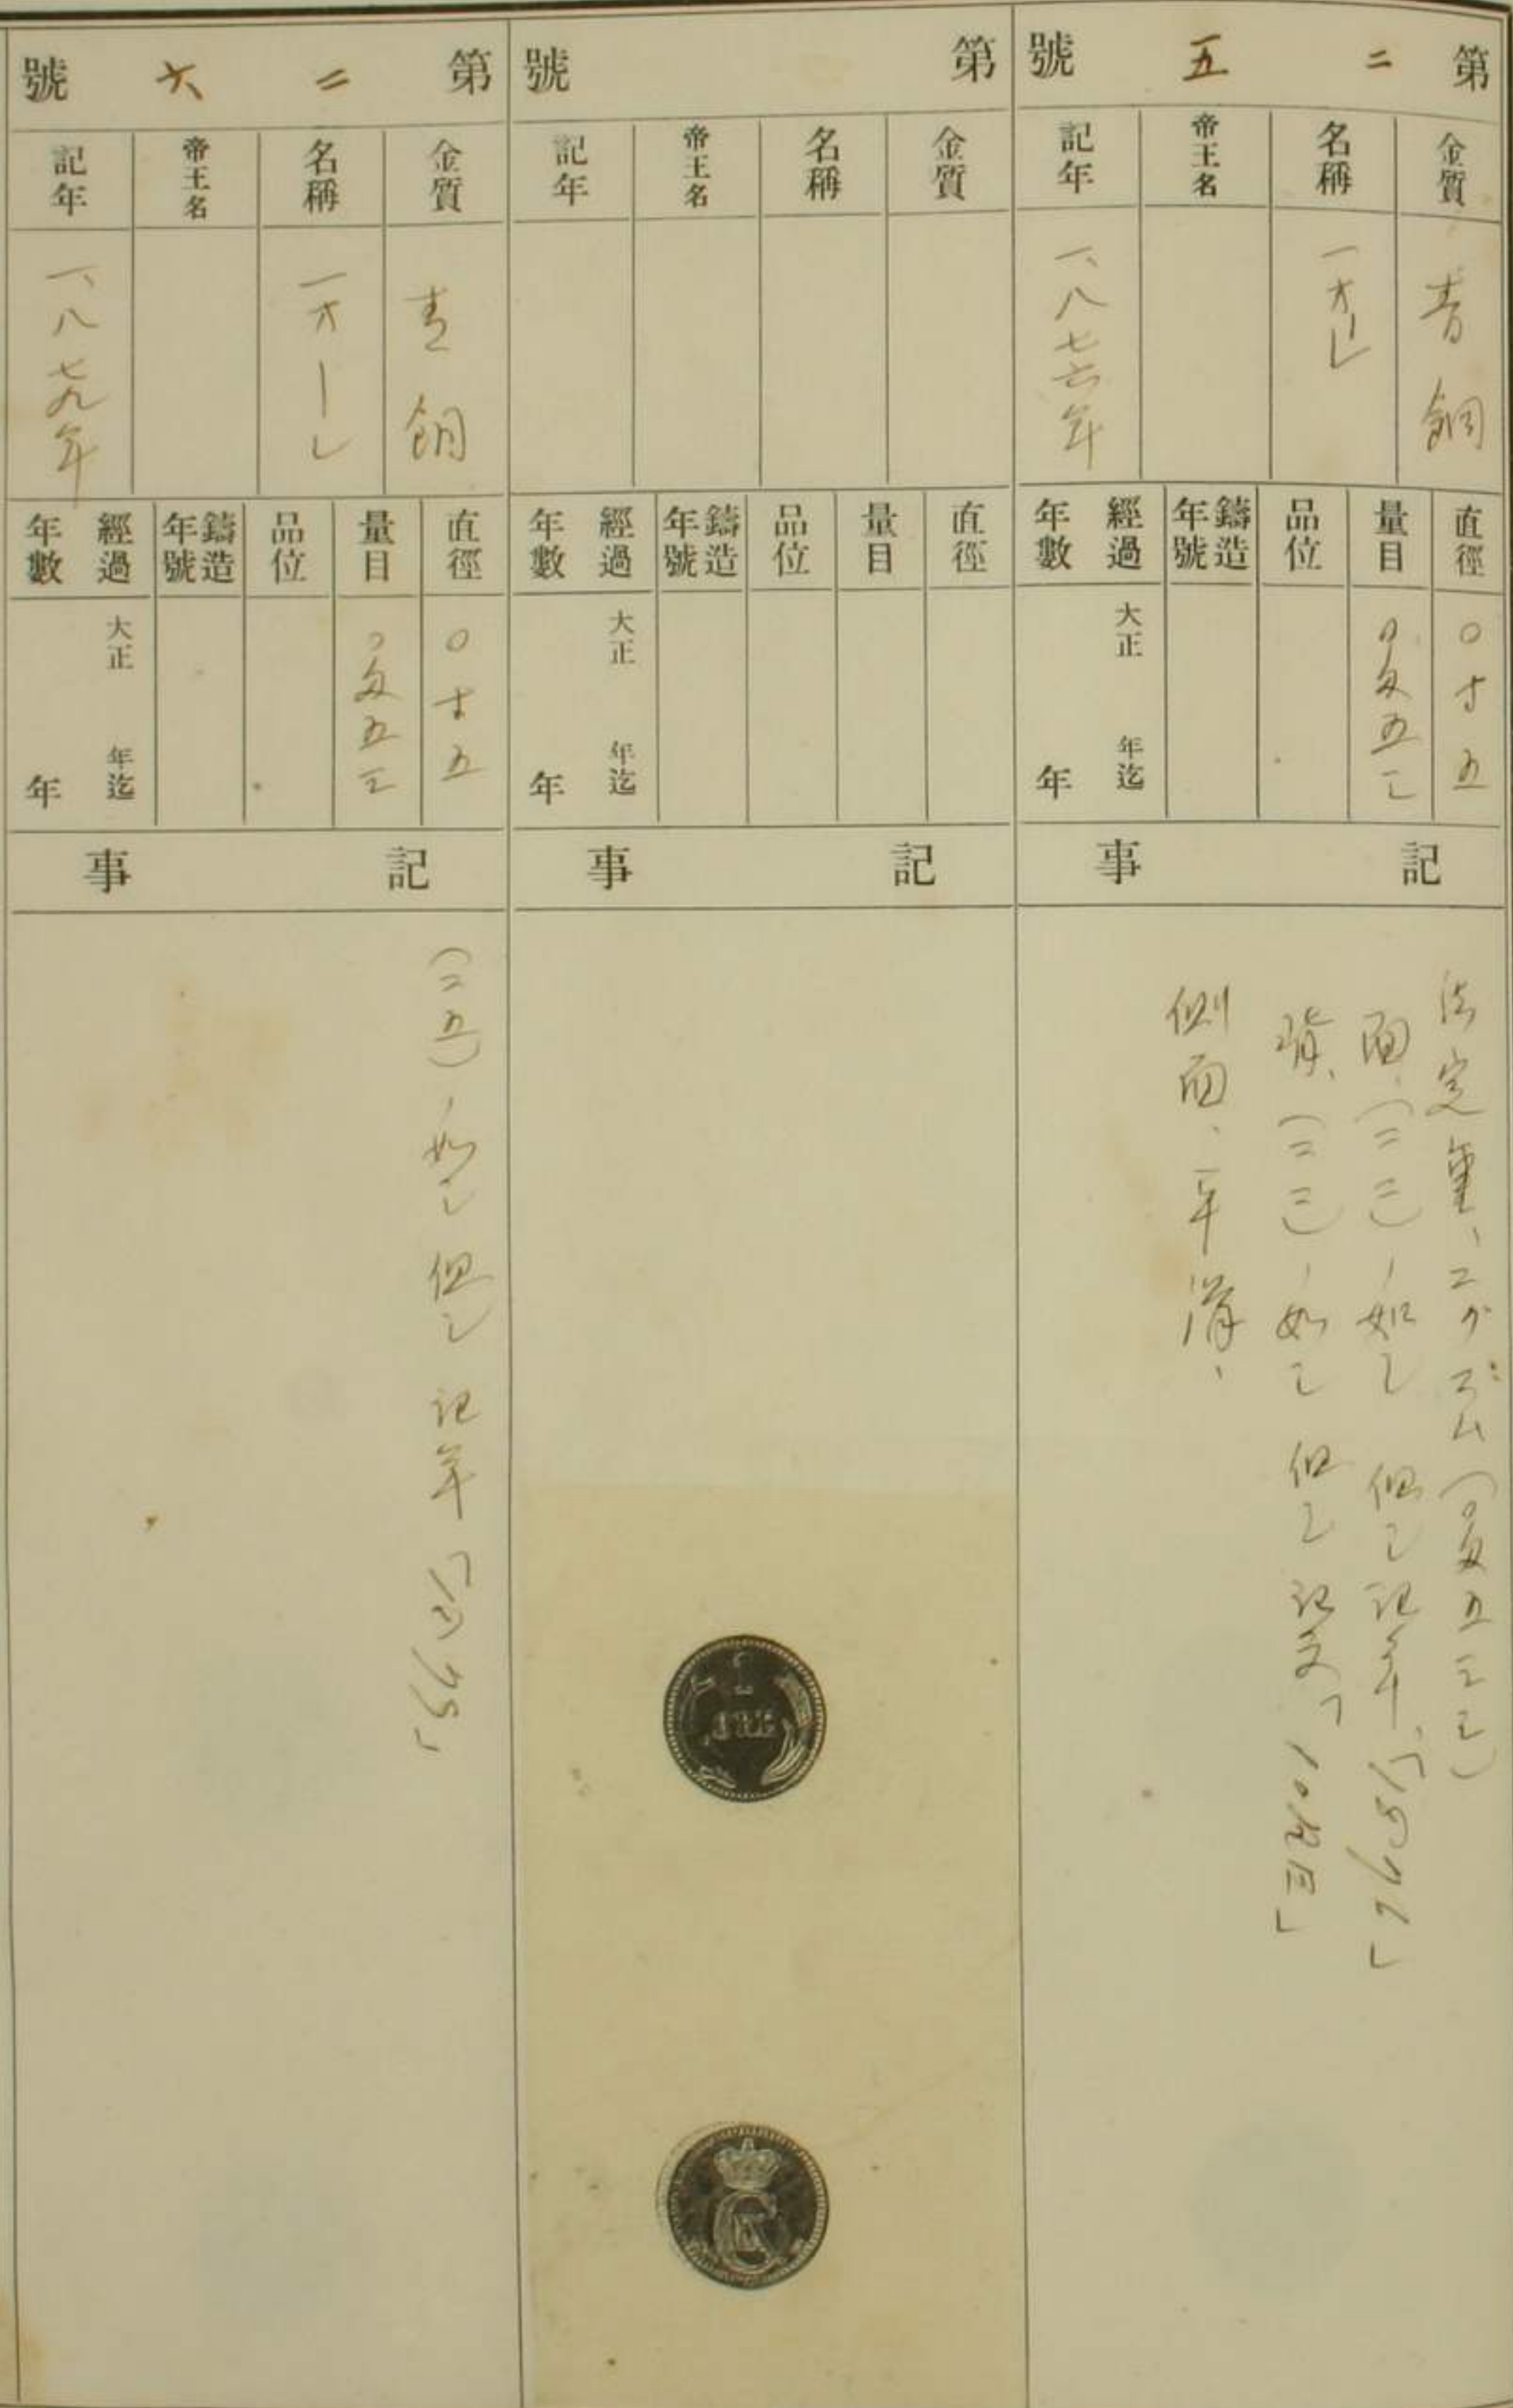 第二五號
金質
青銅
名稱
一オーレ
帝王名
記年
一、八七六年
直徑
〇寸五
量目
〇匁五三
品位
鑄造年號
經過年數
大正 年迄
年
記事
法定量、二グラム(〇匁五三三)
面、(二三)ノ如シ 但シ記年、「1876」
背、(二三)ノ如シ 但シ記文「1 ORE」
側面、平滑、
第 號
金質
名稱
帝王名
記年
直徑
量目
品位
鑄造年號
經過年數
大正 年迄
年
記事
1
ØRE
第二六號
金質
青銅
名稱
一オーレ
帝王名
記年
一、八七九年
直徑
〇寸五
量目
〇匁五三
品位
鑄造年號
經過年數
大正 年迄
年
記事
(二五)ノ如シ但シ記年「1879」